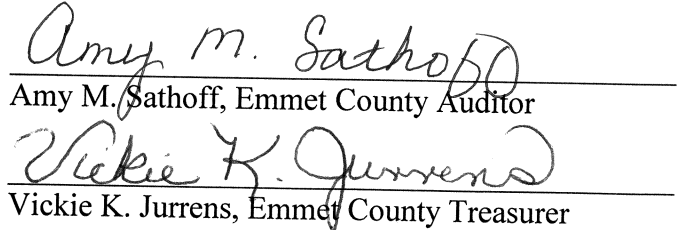 Amy M. Sathoff
Amy M. Sathoff, Emmet County Auditor
Vickie K. Jurrens
Vickie K. Jurrens, Emmet County Treasurer